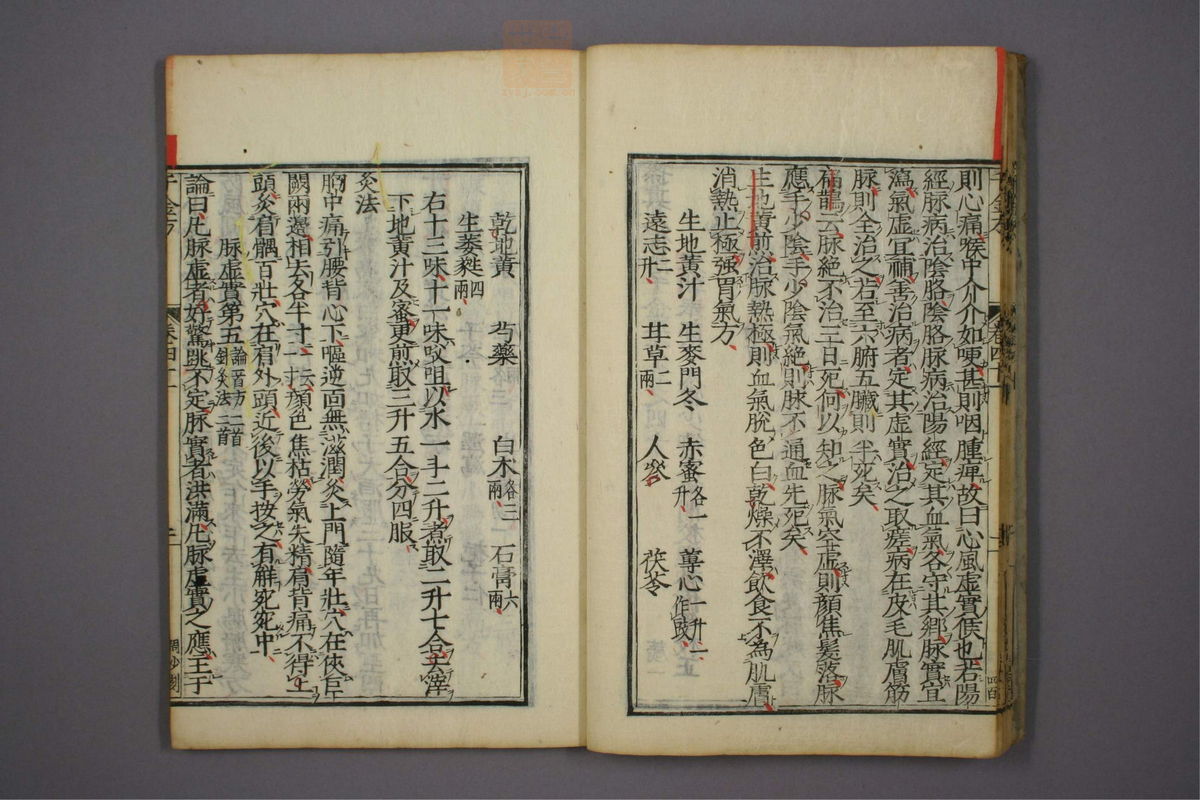 則心痛喉中介介如哽甚則咽腫痺故曰心風虛實候也若陽
經脉病治陰胳陰胳脉病治陽經定其血氣各守其鄉脉實宜
瀉氣虛宜補善治病者定其虛實治之取瘥病在皮毛肌膚筋
脉則全治之若至六腑五臟則半死矣
扁鵲云脉絕不治三日死何以知之脉氣空虛則顏焦髮落脉
應手少陰手少陰氣絕則脉不通血先死矣
生地黃煎治脉熱極則血氣脫色白乾燥不澤飲食不為肌膚
消熱止極强胃氣方
生地黃汁 生麥門冬 赤蜜各一升 蓴心一升一作豉
遠志二升 甘草二兩 人參 茯苓
千金方 卷四十一
乾地黃 芍藥 白术各三兩 石膏六兩
生葳蕤四兩
右十三味十一味㕮咀以水一斗二升煮取二升七合去滓
下地黃汁及蜜更煎取三升五合分四服
灸法
胸中痛引腰背心下嘔逆面無滋潤灸上門隨年壯穴在俠巨
闕兩邊相去各半寸一云一寸顏色焦枯勞氣失精肩背痛不得上
頭灸肩髃百壯穴在肩外頭近後以手按之有解宛宛中
脉虛實第五論一首方二首針灸法二首
論曰凡脉虛者好驚跳不定脉實者洪滿凡脉虛實之應主于